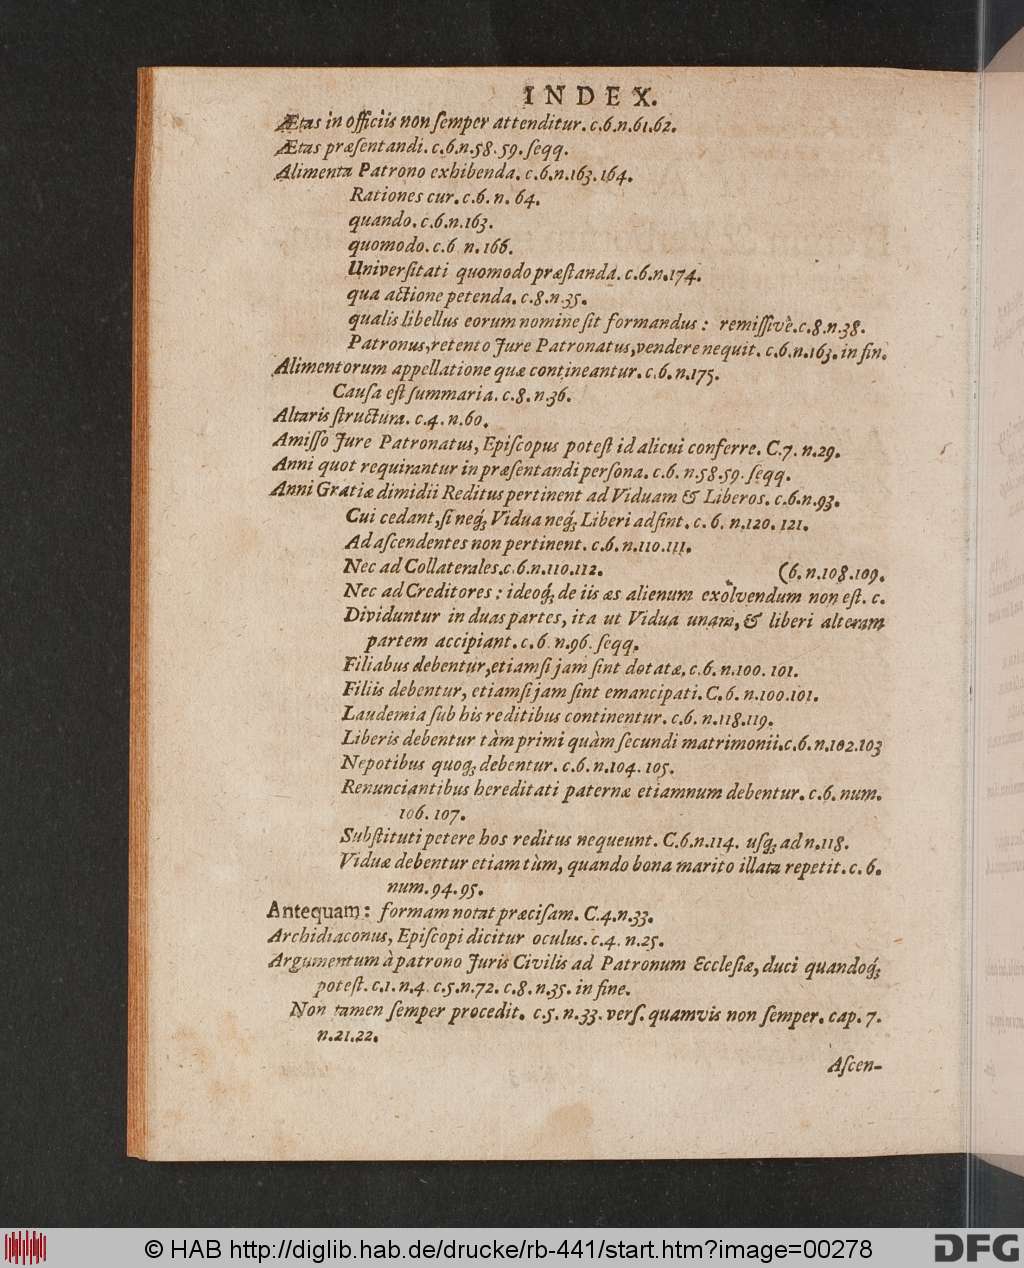 INDEX.
Ætas in officiis non ſemper attenditur. c.6.n.61.62.
Ætas præſentandi. c.6.n.58.59. ſeqq.
Alimenta Patrono exhibenda. c.6.n.163.164.
Rationes cur. c.6. n. 64.
quando. c.6.n.163.
quomodo. c.6 n. 166.
Univerſitati quomodo præſtanda. c.6.n.174.
qua actione petenda. c.8.n.35.
qualis libellus eorum nomine ſit formandus : remiſſivè. c.8.n.38.
Patronus, retento Jure Patronatus, vendere nequit. c.6.n.163. in fin.
Alimentorum appellatione quæ contineantur. c.6. n.175.
Cauſa eſt ſummaria. c.8. n.36.
Altaris ſtructura. c.4. n.60.
Amiſſo Jure Patronatus, Epiſcopus poteſt id alicui conferre. C.7. n.29.
Anni quot requirantur in præſentandi perſona. c.6. n.58.59. ſeqq.
Anni Gratiæ dimidii Reditus pertinent ad Viduam & Liberos. c.6.n.93.
Cui cedant, ſi neq́ꝫ Vidua neq́ꝫ Liberi adſint. c. 6. n.120. 121.
Ad aſcendentes non pertinent. c.6.n.110.111.
Nec ad Collaterales. c.6.n.110.112. (6. n.108.109.
Nec ad Creditores : ideoq́ꝫ de iis æs alienum exolvendum non eſt. c.
Dividuntur in duas partes, ita ut Vidua unam, & liberi alteram
partem accipiant. c. 6. n.96. ſeqq.
Filiabus debentur, etiamſi jam ſint dotatæ. c.6. n.100. 101.
Filiis debentur, etiamſi jam ſint emancipati. C.6. n.100.101.
Laudemia ſub his reditibus continentur. c.6. n.118.119.
Liberis debentur tàm primi quàm ſecundi matrimonii. c.6.n.102.103
Nepotibus quoqꝫ debentur. c.6.n.104. 105.
Renunciantibus hereditati paternæ etiamnum debentur. c.6. num.
106. 107.
Subſtituti petere hos reditus nequeunt. C.6.n.114. uſqꝫ ad n.118.
Viduæ debentur etiam tùm, quando bona marito illata repetit. c. 6.
num. 94.95.
Antequam: formam notat præciſam. C.4.n.33.
Archidiaconus, Epiſcopi dicitur oculus. c.4. n.25.
Argumentum à patrono Juris Civilis ad Patronum Eccleſiæ, duci quandoq́ꝫ
poteſt. c.1. n.4. c.5.n.72. c.8. n.35. in fine.
Non tamen ſemper procedit. c.5. n.33. verſ. quamvis non ſemper. cap. 7.
n.21.22.
Aſcen-
© HAB http://diglib.hab.de/drucke/rb-441/start.htm?image=00278
DFG